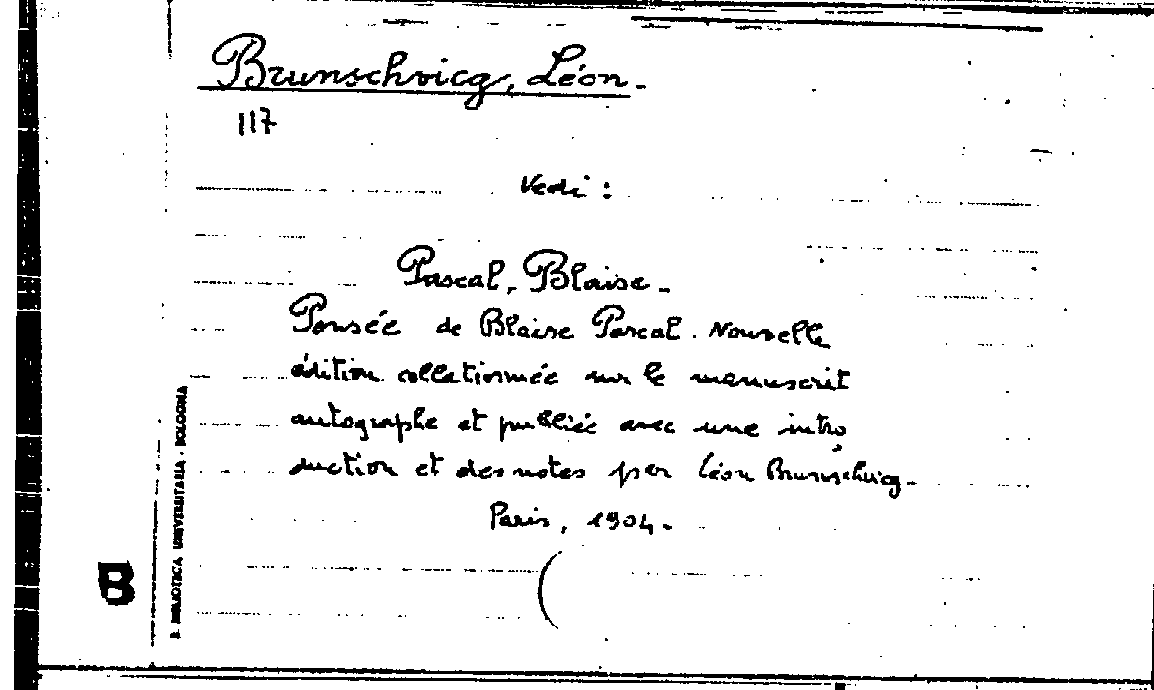 Brunschvicg, Léon.
117
Vedi:
Pascal, Blaise.
Pensée de Blaise Pascal. Nouvelle
édition collationnée sur le manuscrit
autographe et publiée avec une intro
duction et des notes par Léon Brunschvicg.
Paris, 1904.
B
B. BIBLIOTECA UNIVERSITARIA - BOLOGNA